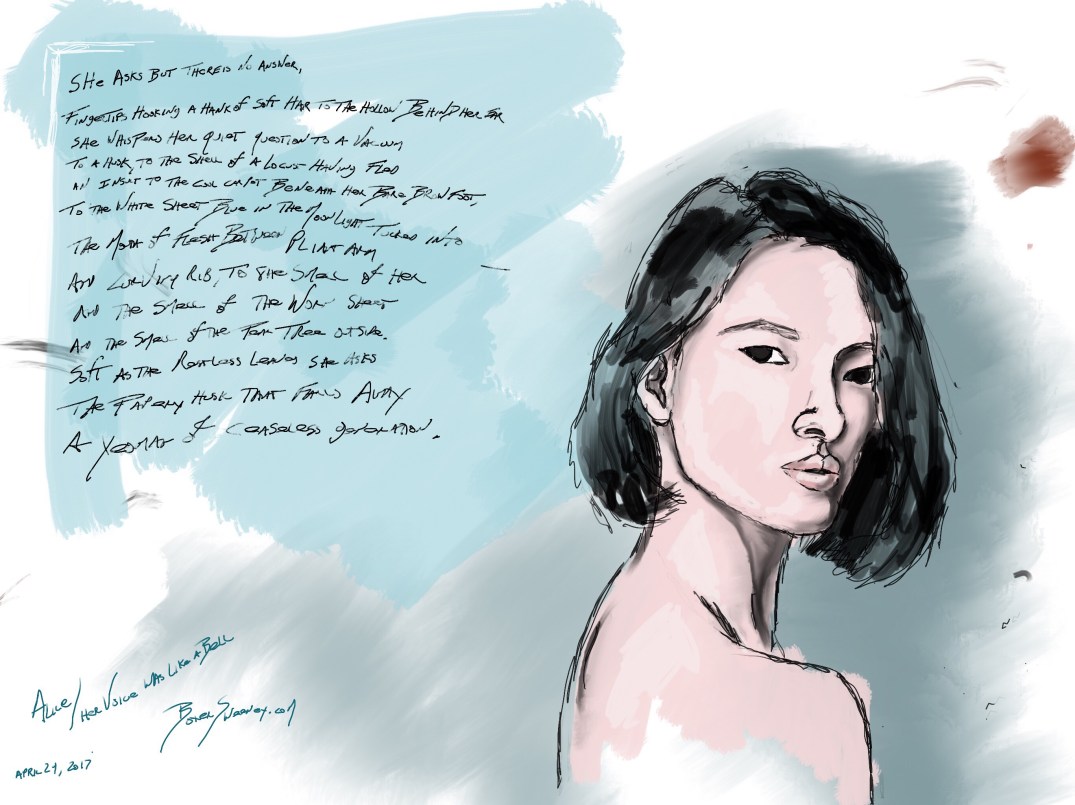 She Asks But There is No Answer,
Fingertips Hooking A Hank of Soft Hair To The Hollow Behind Her Ear
She Whispers Her Quiet Question To A Vacuum
To A Husk, To The Shell of A Locust Having Fled
An Insult To The Cool Carpet Beneath Her Bare Brown Foot,
To The White Sheet Blue in The Moonlight Tucked Into
The Mouth of Flesh Between Pliant Arm
And Curving Rib, To The Smell of Her
And The Smell of The Worn Sheet
And The Smell of the Tree Outside.
Soft As The Restless Leaves She Asks
The Papery Husk That Falls Away
A of Ceaseless Generation.
Her Voice Was Like A Bell
April 24, 2017